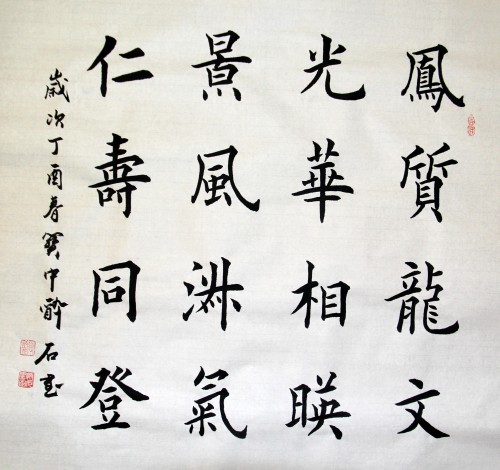 鳳質龍文
光華相暎
景風淑氣
仁壽同登
歲次丁酉春寶中醉石書